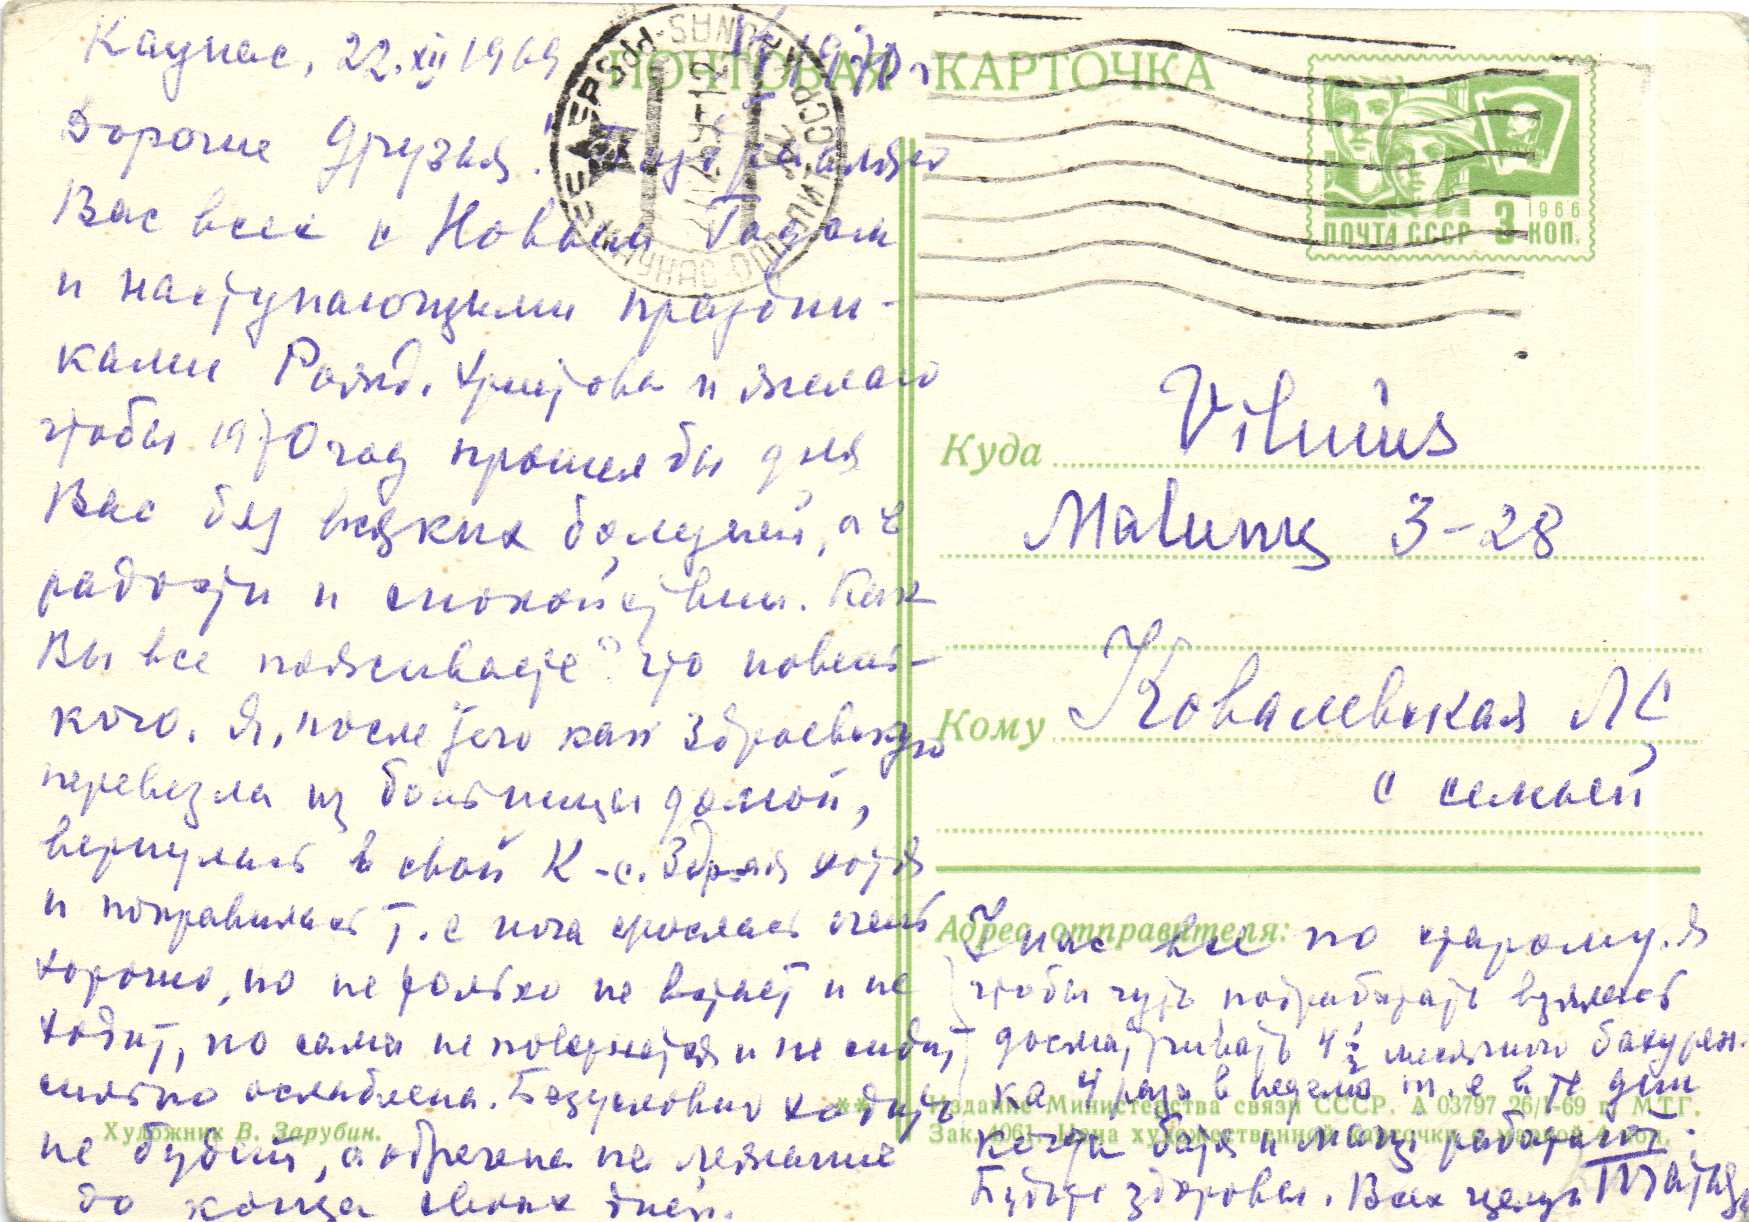 Каунас, 22.XII 1969
ПОЧТОВАЯ КАРТОЧКА
Дорогие друзья! Поздравляю
Вас всех с Новым Годом
и наступающими праздни-
ками Рожд. Христова и желаю
чтобы 1970 год прошел бы для
Вас без всяких болезней, а в
радости и спокойствии. Как
Вы все поживаете? Что новень-
кого. Я, после того как
перевезла из больницы домой,
вернулась в свой К-с. хотя
и поправилась т.е нога срослась очень
хорошо, но не только не встает и не
ходит, но сама не повернется и не сидит
сильно ослаблена. Безусловно ходить
не будет, а обречена на лежание
до конца своих дней.
Художник В. Зарубин.
1966
ПОЧТА СССР 3 КОП.
Куда Vilnius
Malunų 3-28
Кому Ковалевская Л С
с семьей
Адрес отправителя:
У нас все по старому. Я
чтобы чуть подработать взялась
досматривать 4 1/2 месячного
ка 4 раза в неделю т.е в те дни
когда работают.
Будьте здоровы. Всех целую
** Издание Министерства связи СССР. А 03797 26/I-69 г. МТГ.
Зак. 4061. Цена художественной карточки с маркой 4 коп.